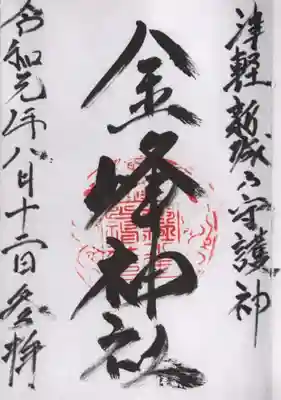 津軽新城の守護神
金峰神社
令和元年八月十二日参拝